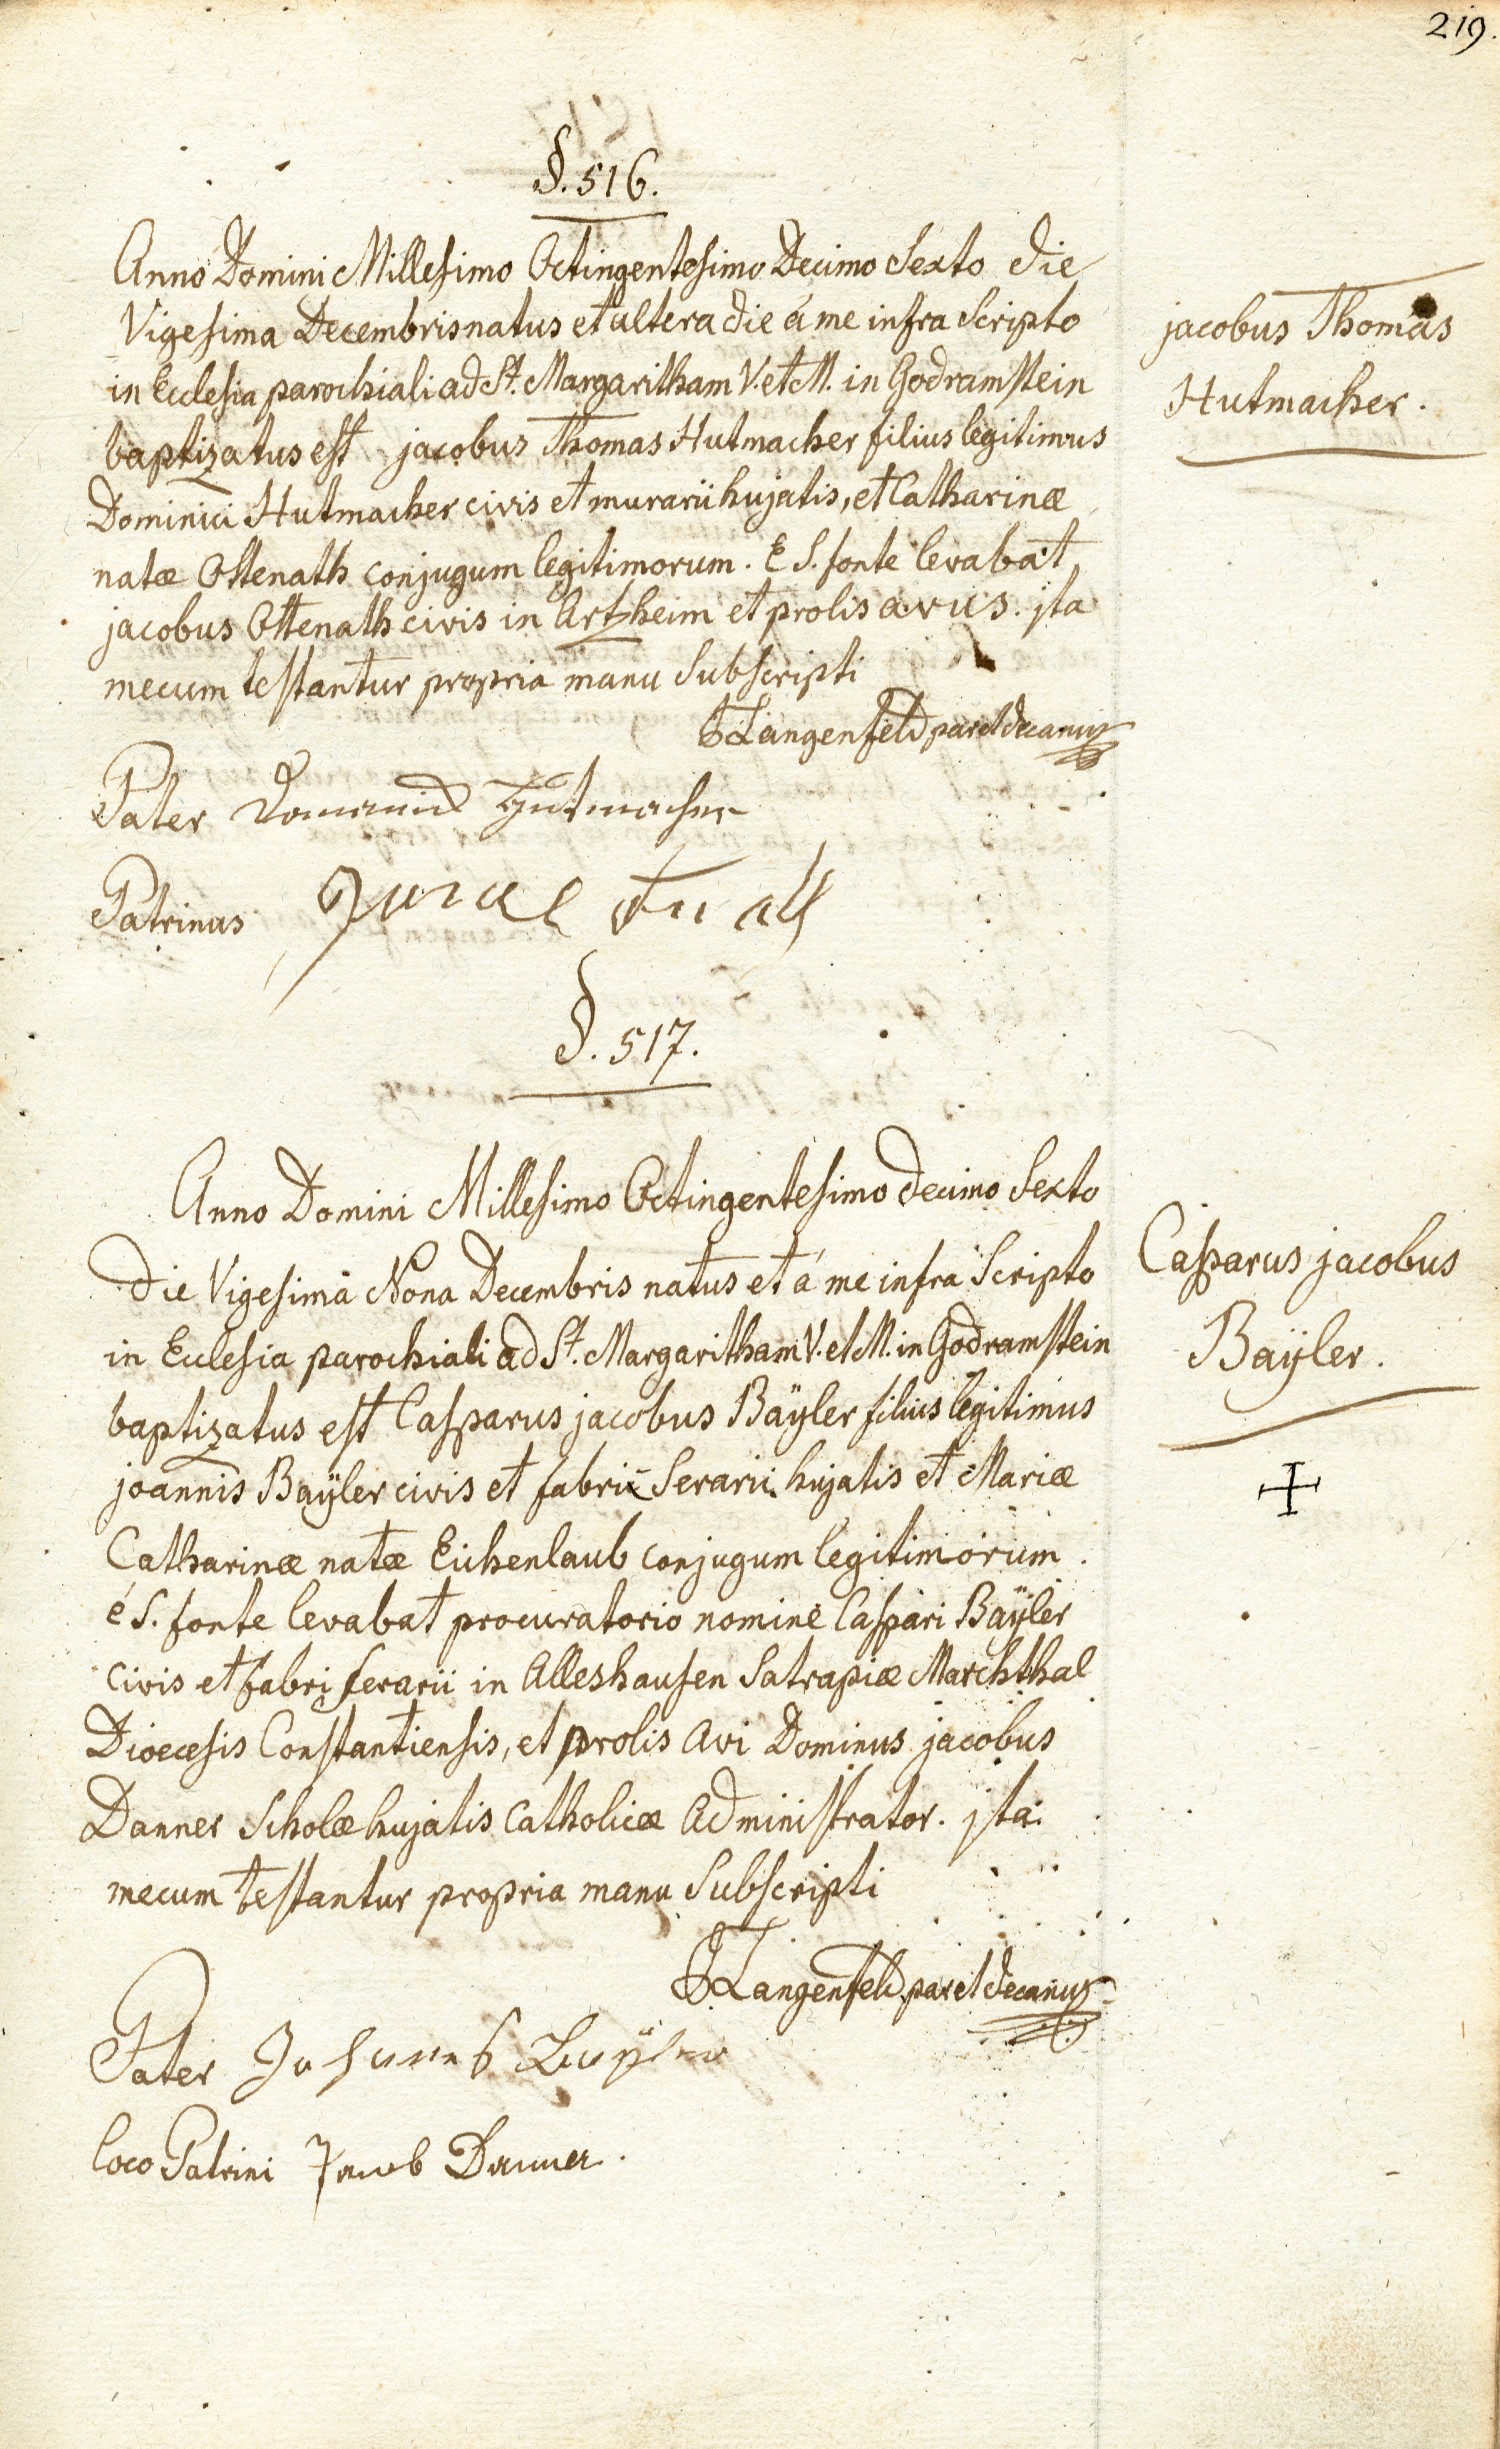 219.
§. 516.
Anno Domini Millesimo Octingentesimo Decimo Sexto die
Vigesima Decembris natus et altera die á me infra Scripto
in Ecclesia parochiali ad St. Margaritham V. et M. in Godramstein
baptizatus est jacobus Thomas Hutmacher filius legitimus
Dominici Hutmacher civis et murarii hujatis, et Catharinæ
natæ Ottenath conjugum legitimorum. E S. fonte levabat
jacobus Ottenath civis in Artzheim et prolis avus. jta
mecum testantur propria manu Subscripti
jacobus Thomas
Hutmacher.
Langenfeld par et decanus
Pater Dominic Hutmacher
Patrinus
§. 517.
Anno Domini Millesimo Octingentesimo decimo Sexto
die Vigesima Nona Decembris natus et á me infra Scripto
in Ecclesia parochiali ad St. Margaritham V. et M. in Godramstein
baptizatus est Casparus jacobus Baÿler filius legitimus
joannis Baÿler civis et fabri Serarii hujatis et Mariæ
Catharinæ natæ Eichenlaub conjugum legitimorum.
é S. fonte levabat procuratorio nomine Caspari Baÿler
civis et fabri ferarii in Alleshausen Satrapiæ Marchthal
Dioecesis Constantiensis, et prolis avi Dominus jacobus
Danner Scholæ hujatis Catholicæ Administrator. jta
mecum testantur propria manu Subscripti
Casparus jacobus
Baÿler.
Langenfeld par et decanus
Pater Johannes Baÿler
loco Patrini Jacob Danner.